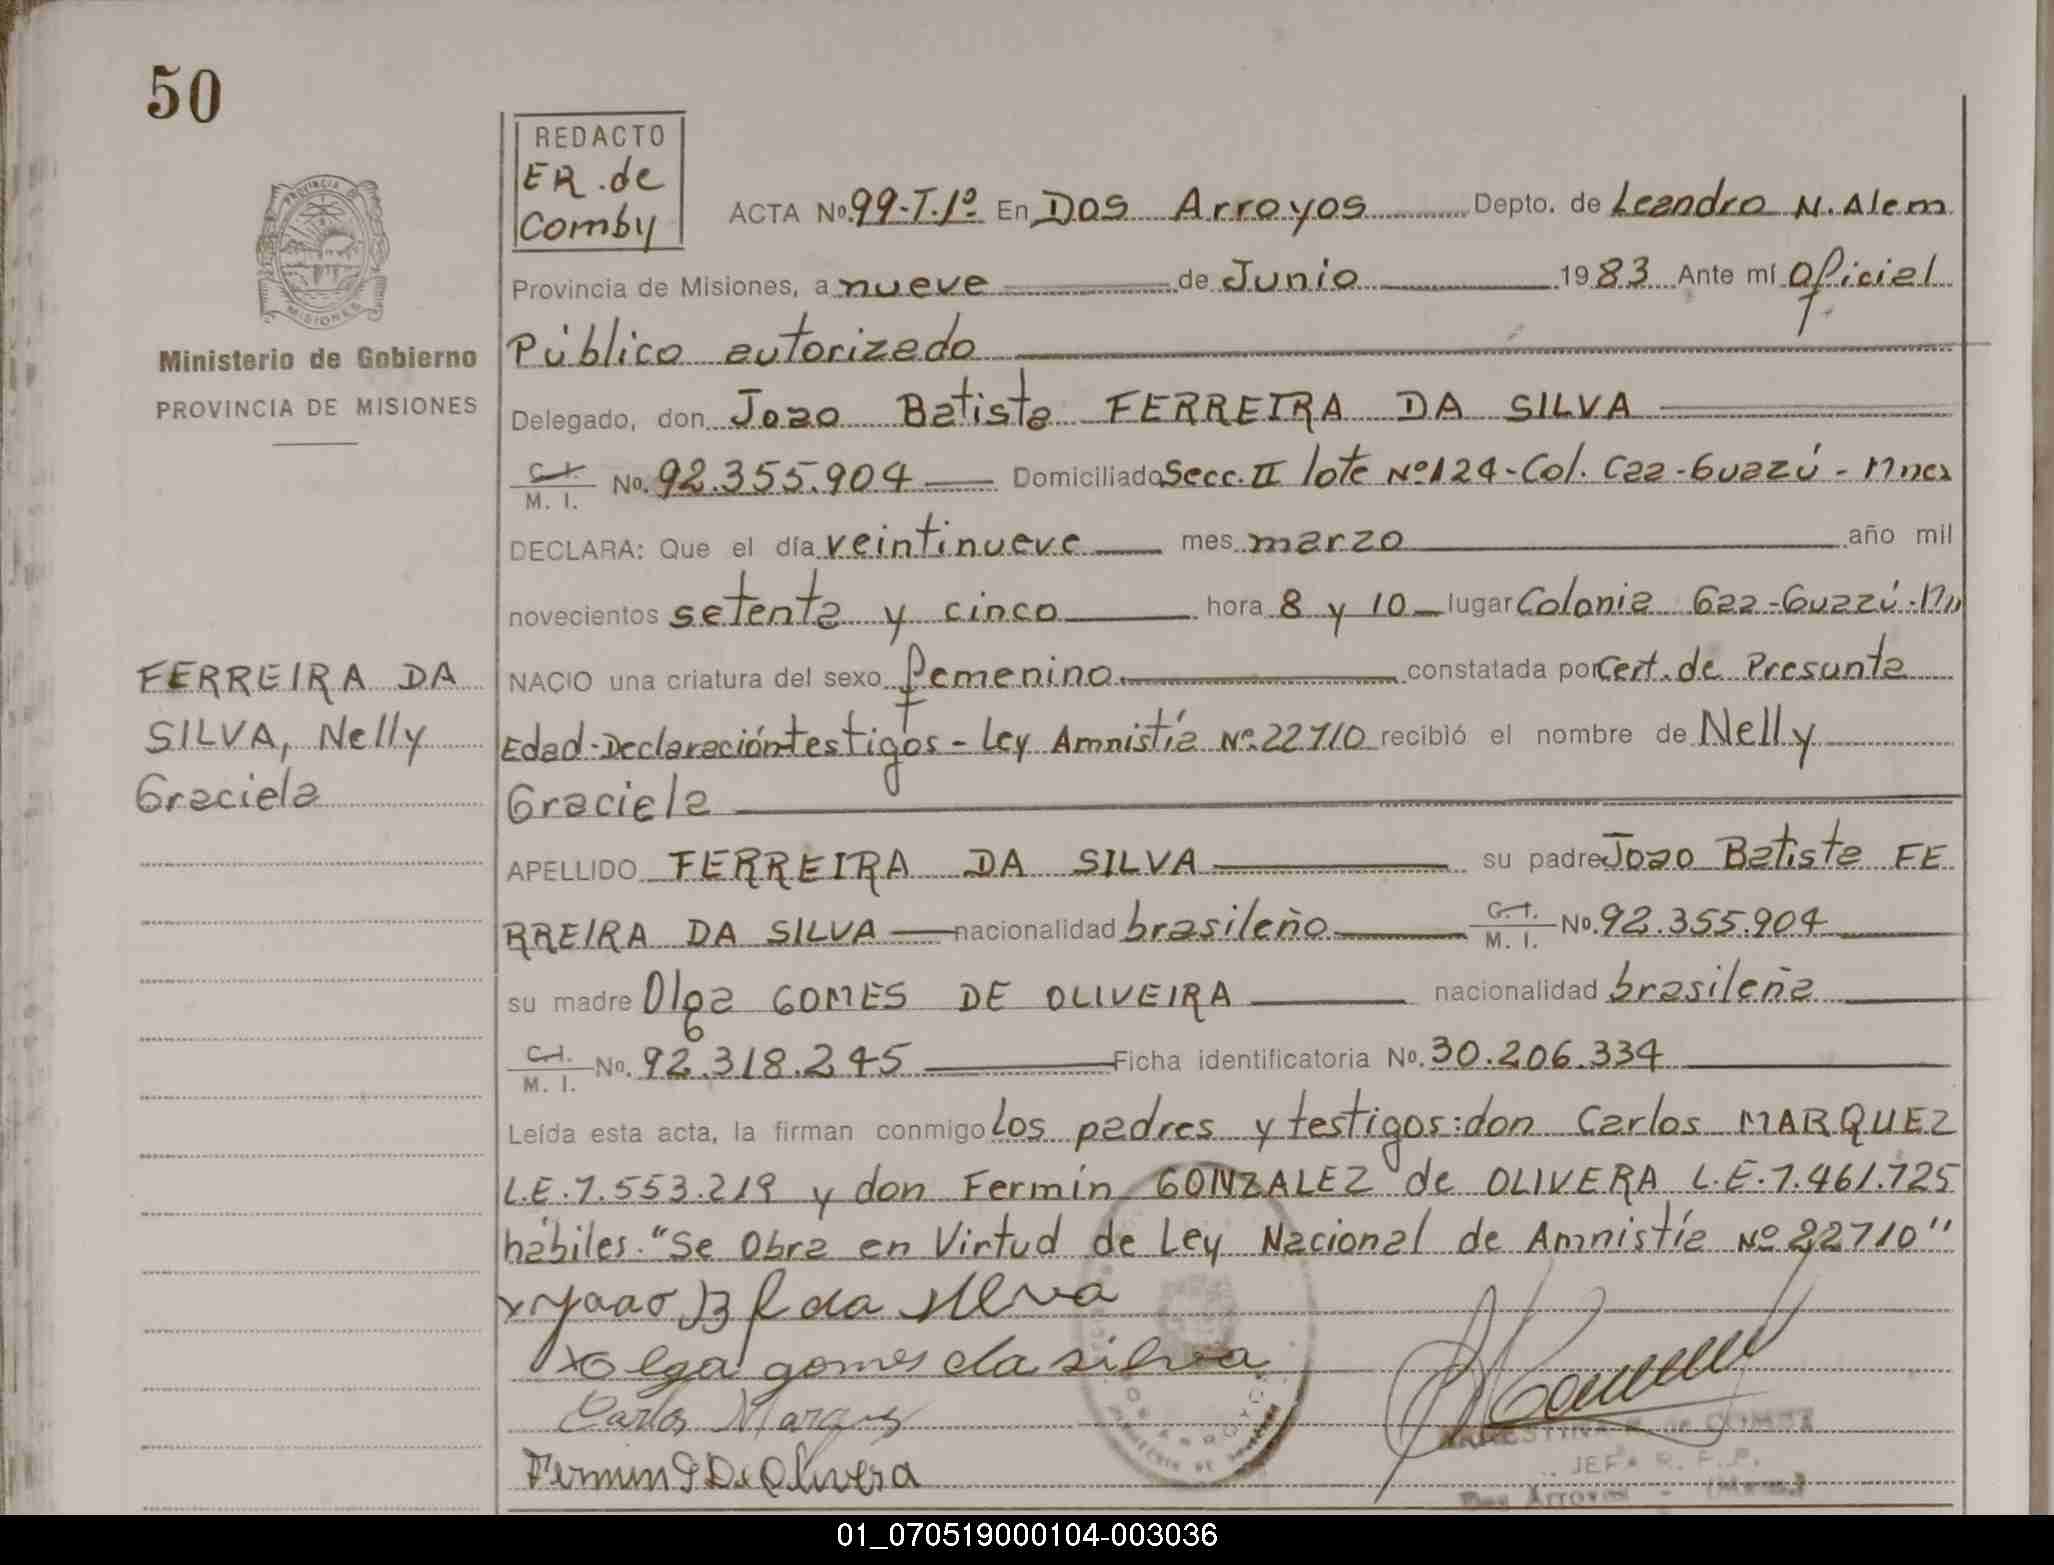 50
REDACTO
ER. de
Comby
PROVINCIA
MISIONES
Ministerio de Gobierno
PROVINCIA DE MISIONES
ACTA No. 99-T.1º En Dos Arroyos Depto. de Leandro N. Alem
Provincia de Misiones, a nueve de Junio 1983 Ante mí Oficial
Público autorizado
Delegado, don Joao Batista FERREIRA DA SILVA
C.I. / M. I. No. 92.355.904 Domiciliado Secc. II lote Nº 124-Col. Caa-Guazú - Mnes
DECLARA: Que el día veintinueve mes marzo año mil
novecientos setenta y cinco hora 8 y 10 lugar Colonia Caa-Guazú-
NACIO una criatura del sexo femenino constatada por Cert. de Presunta
Edad-Declaración testigos - Ley Amnistía Nº 22710 recibió el nombre de Nelly
Graciela
FERREIRA DA
SILVA, Nelly
Graciela
APELLIDO FERREIRA DA SILVA su padre Joao Batista FE
RREIRA DA SILVA nacionalidad brasileño C.I. / M. I. No. 92.355.904
su madre Olga GOMES DE OLIVEIRA nacionalidad brasileña
C.I. / M. I. No. 92.318.245 Ficha identificatoria No. 30.206.334
Leída esta acta, la firman conmigo los padres y testigos: don Carlos MARQUEZ
L.E. 7.553.219 y don Fermín GONZALEZ de OLIVERA L.E. 7.461.725
hábiles. "Se Obra en Virtud de Ley Nacional de Amnistía Nº 22710"
x Joao B F da Silva
x Olga gomes da silva
Carlos Marquez
Fermin G De Olivera
de COMBY
JEFA R. P. P.
Dos Arroyos - (Mnes.)
01_070519000104-003036